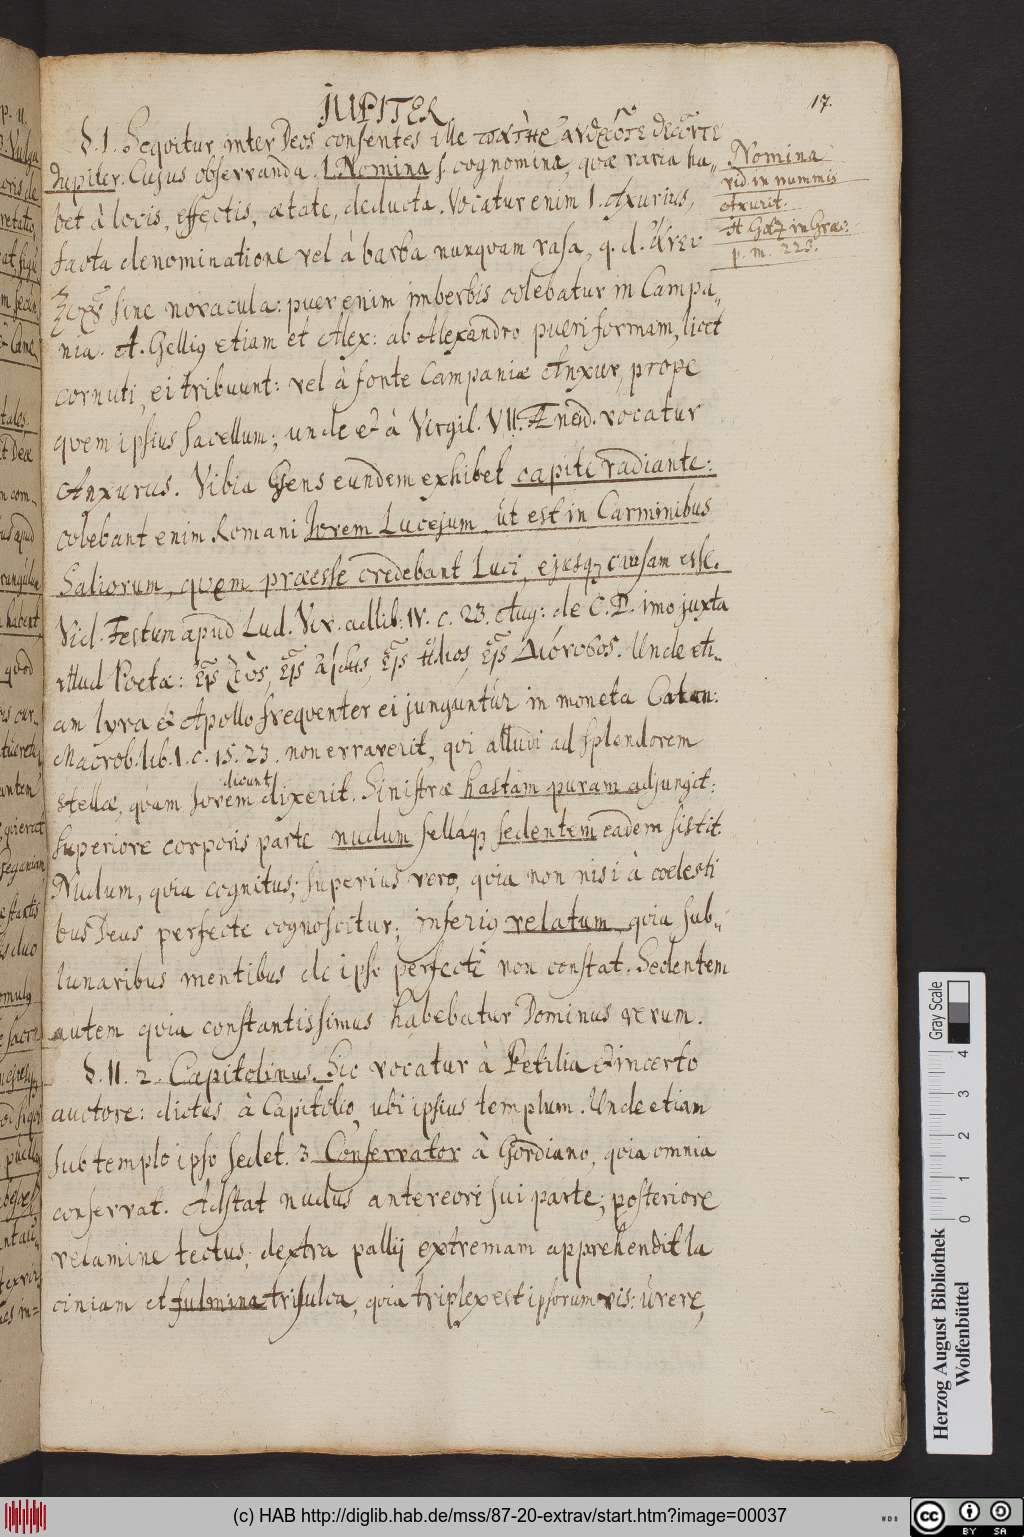 17.
JUPITER
§. I. Sequitur inter Deos consentes ille πατὴρ ἀνδρῶντε θεῶντε
Jupiter. Cujus observanda. 1. Nomina s. cognomina, quæ varia ha„
bet à locis, effectis, ætate, deducta. Vocatur enim 1. Axurius,
facta denominatione vel à barba nunquam rasa, q. d. ἄνευ
sine novacula: puer enim imberbis colebatur in Campa„
nia. A. Gellius etiam et Alex: ab Alexandro pueri formam, licet
cornuti, ei tribuunt: vel à fonte Campaniæ Anxur, prope
quem ipsius sacellum; unde & à Virgil. VII. Æneid. vocatur
Anxurus. Vibia Gens eundem exhibet capite radiante:
colebant enim Romani Jovem Lucejum, ut est in Carminibus
Saliorum, quem præesse credebant Luci, ejusq; causam esse.
Vid. Festum apud Lud. Viv. ad lib. IV. c. 23. Aug: de C. D. imo juxta
illud Poetæ: εἷς Ζεὺς, εἷς Ἀΐδης, εἷς Ἥλιος, εἷς Διόνυσος. Unde eti„
am lyra & Apollo frequenter ei junguntur in moneta Catan:
Macrob. lib. I. c. 15. 23. non erraverit, qui alludi ad splendorem
stellæ, quam Jovem dicunt dixerit. Sinistræ hastam puram adjungit:
superiore corporis parte nudum sellâq; sedentem eadem sistit.
Nudum, quia cognitus; superius vero, quia non nisi à cœlesti
bus Deus perfecte cognoscitur; inferius velatum quia sub„
lunaribus mentibus de ipso perfectè non constat. Sedentem
autem quia constantissimus habebatur Dominus rerum.
§. II. 2. Capitolinus. Sic vocatur à Petilia & incerto
auctore: dictus à Capitolio, ubi ipsius templum. Unde etiam
sub templo ipso sedet. 3. Conservator à Gordiano, quia omnia
conservat. Adstat nudus antereori sui parte; posteriore
velamine tectus; dextra pallij extremam apprehendit la
ciniam et fulmina trisulca, quia triplex est ipsorum vis: urere,
Nomina
vid. in nummis
Axurit.
A. Golz in Græc:
p. m. 223.
Herzog August Bibliothek
Wolfenbüttel
0 1 2 3 4
Gray Scale
(c) HAB http://diglib.hab.de/mss/87-20-extrav/start.htm?image=00037
WDB
cc BY SA